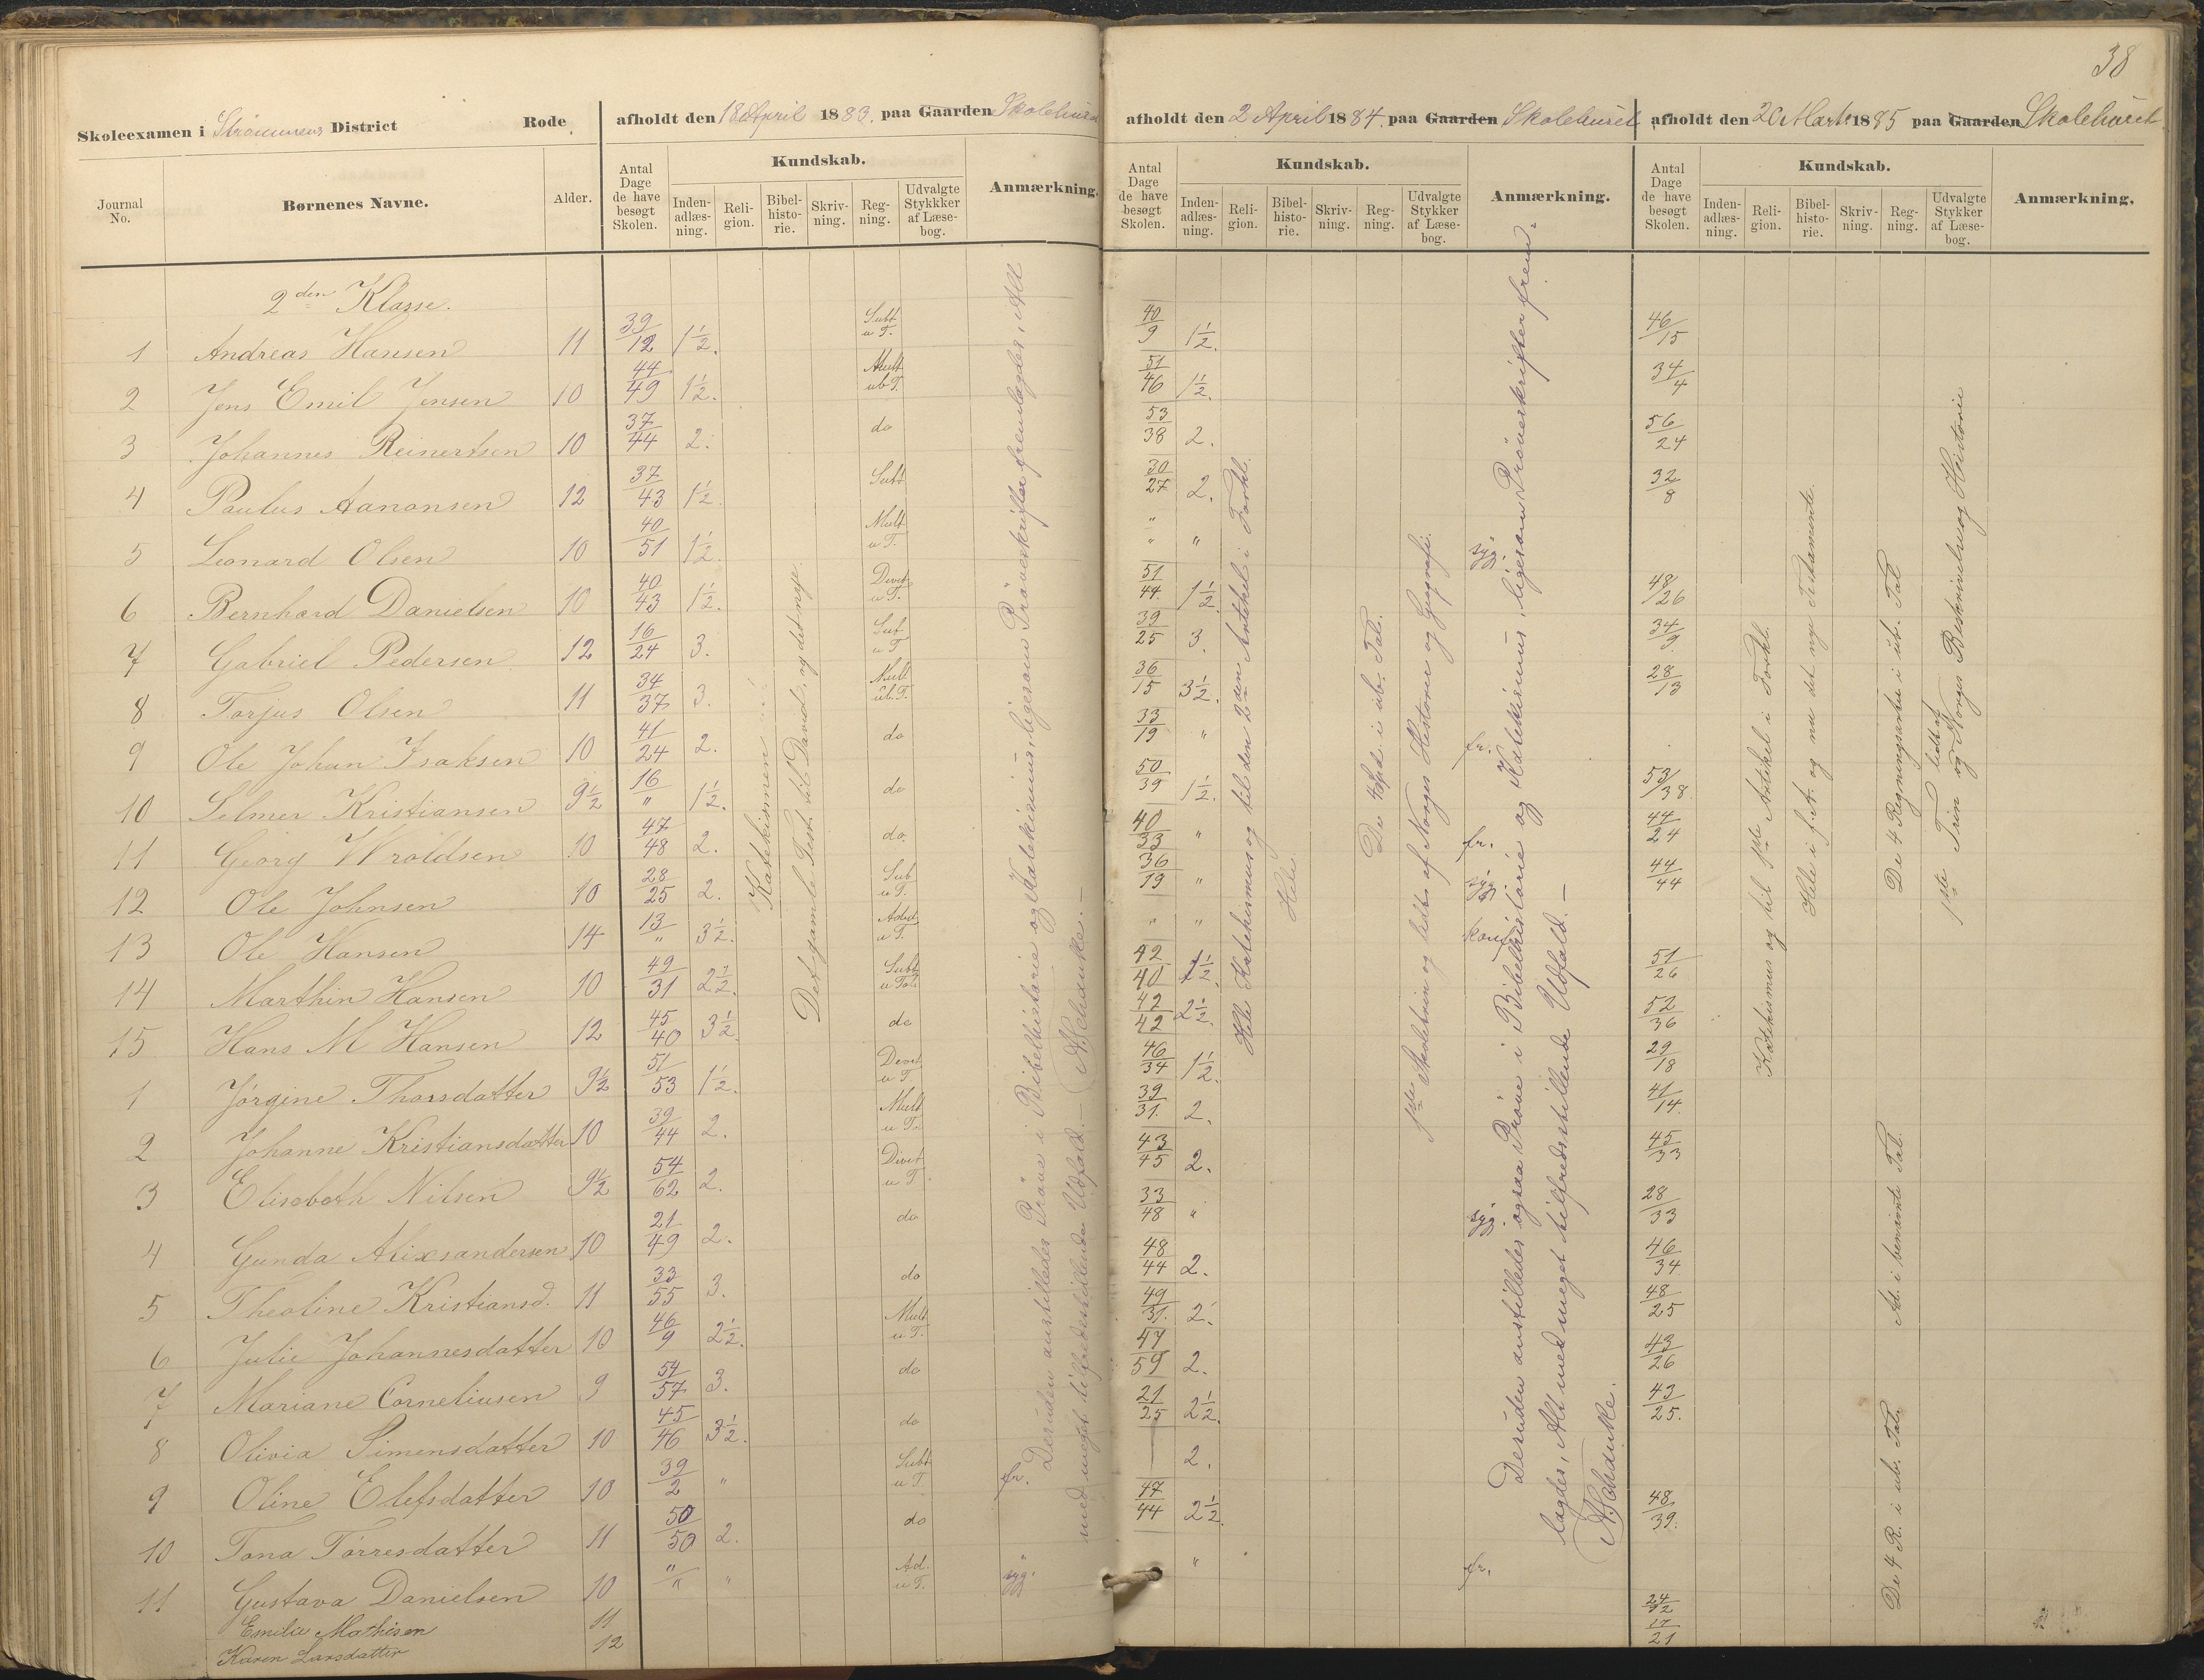 38
Skoleexamen i Strømmens District Rode
afholdt den 18 April 1883. paa Gaarden Skolehuset
afholdt den 2 April 1884. paa Gaarden Skolehuset
afholdt den 20 Marts 1885 paa Gaarden Skolehuset
Journal No. Børnenes Navne. Alder. Antal Dage de have besøgt Skolen. Kundskab. Inden-adlæs-ning. Reli-gion. Bibel-histo-rie. Skriv-ning. Reg-ning. Udvalgte Stykkker af Læse-bog. Anmærkning.
Antal Dage de have besøgt Skolen. Kundskab. Inden-adlæs-ning. Reli-gion. Bibel-histo-rie. Skriv-ning. Reg-ning. Udvalgte Stykker af Læse-bog. Anmærkning.
Antal Dage de have besøgt Skolen. Kundskab. Inden-adlæs-ning. Reli-gion. Bibel-histo-rie. Skriv-ning. Reg-ning. Udvalgte Stykker af Læse-bog. Anmærkning.
2den Klasse.
1 Andreas Hansen 11 39/12 1½. Subt u T. 40/9 1½. 46/15
2 Jens Emil Jensen 10 44/49 1½. Mult ub T. 51/46 1½. 34/4
3 Johannes Reinertsen 10 37/44 2. do 53/38 2. 56/24
4 Paulus Aanonsen 12 37/43 1½. Subt 30/27 2. 32/8
5 Leonard Olsen 10 40/51 1½. Mult u T. " " " syg.
6 Bernhard Danielsen 10 40/43 1½. Divit u T. 51/44. 1½. 48/26
7 Gabriel Pedersen 12 16/24 3. Sub u T 39/25 3. 34/9.
8 Torjus Olsen 11 34/37 3. Mult ub. T. 36/15 3½. 28/13
9 Ole Johan Isaksen 10 41/24 2. do 33/19 " fr.
10 Selmer Kristiansen 9½ 16/" 1½. do 50/39 1½. 53/38.
11 Georg Wroldsen 10 47/48 2. do. 40/33 " fr. 44/24
12 Ole Johnsen 10 28/25 2. Sub u T. 36/19 " syg 44/44
13 Ole Hansen 14 13/" 3½. Add u T. " " konf.
14 Marthin Hansen 10 49/31 2½. Subt u Tal 42/40 1½. 51/26
15 Hans M Hansen 12 45/40 3½. do 42/42 2½. 52/36
1 Jörgine Thorsdatter 9½ 51/53 1½. Divit u T 46/34 1½. 29/18
2 Johanne Kristiansdatter 10 39/44 2. Mult u T. 39/31. 2. 41/14.
3 Elisabeth Nilsen 9½ 54/62 2. Divit u T. 43/45 2. 45/33
4 Gunda Alixsandersen 10 21/49 2. do 33/48 " syg. 28/33
5 Theoline Kristiansd. 11 33/55 3. do 48/44 2. 46/34
6 Julie Johannesdatter 10 46/9 2½. Mult u T. 49/31. 2. 48/25
7 Mariane Corneliusen 9 54/57 3. do 47/59 2. 43/26
8 Olivia Simensdatter 10 45/46 3½. do 21/25 2½. 43/25.
9 Oline Elefsdatter 10 39/2 " Subt u T. fr. 2.
10 Tona Törresdatter 11 50/50 2. do 47/44 2½. 48/39.
11 Gustava Danielsen 10 "/" " Ad. u T. syg. " fr.
Emilie Mathisen 11 24/32
Karen Larsdatter 12 17/21
Katekismen
Det gamle Test. til David, og det nye.
Desuden anstilledes Pröve i Bibelhistorie og Katekismus, ligesom Pröveskrifter fremlagdes, Alt
med meget tilfredsstillende Udfald. — A. Schanke. —
Hele Katekismus og til den 2den Artikel i Forkl.
Hele
De 4 Spd. i ub. Tal.
1ste Skoletrin og lidt af Norges Historie og Geografi.
Desuden anstilledes ogsaa Pröve i Bibelhistorie og Katekismus, ligesom Pröveskrifter frem-
lagdes, Alt med meget tilfredsstillende Udfald. —
A. Schanke.
Katekismus og til 1ste Artikel i Forkl.
Hele i f. A. og nu det nye Testamente.
De 4 Regningsarter i ub. Tal
Ad. i benævnte Tal.
De 4 R. i ub. Tal.
1ste Trin og lidt af Norges Beskrivelse og Historie